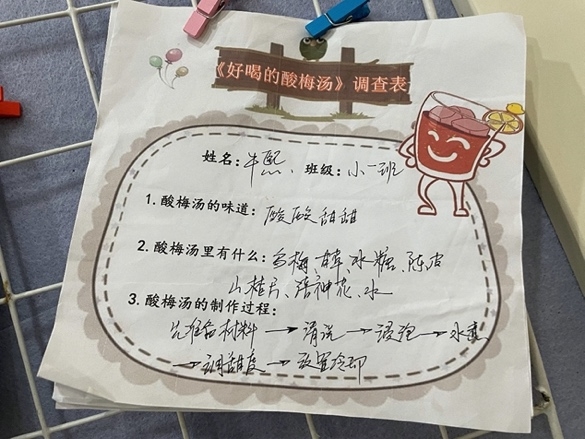 《好喝的酸梅汤》调查表
姓名: 牛 班级: 小一班
1. 酸梅汤的味道: 酸酸甜甜
2. 酸梅汤里有什么: 乌梅、甘草、冰糖、陈皮
山楂片、洛神花、水
3. 酸梅汤的制作过程:
先准备材料→清洗→浸泡→水煮
→调甜度→放置冷却